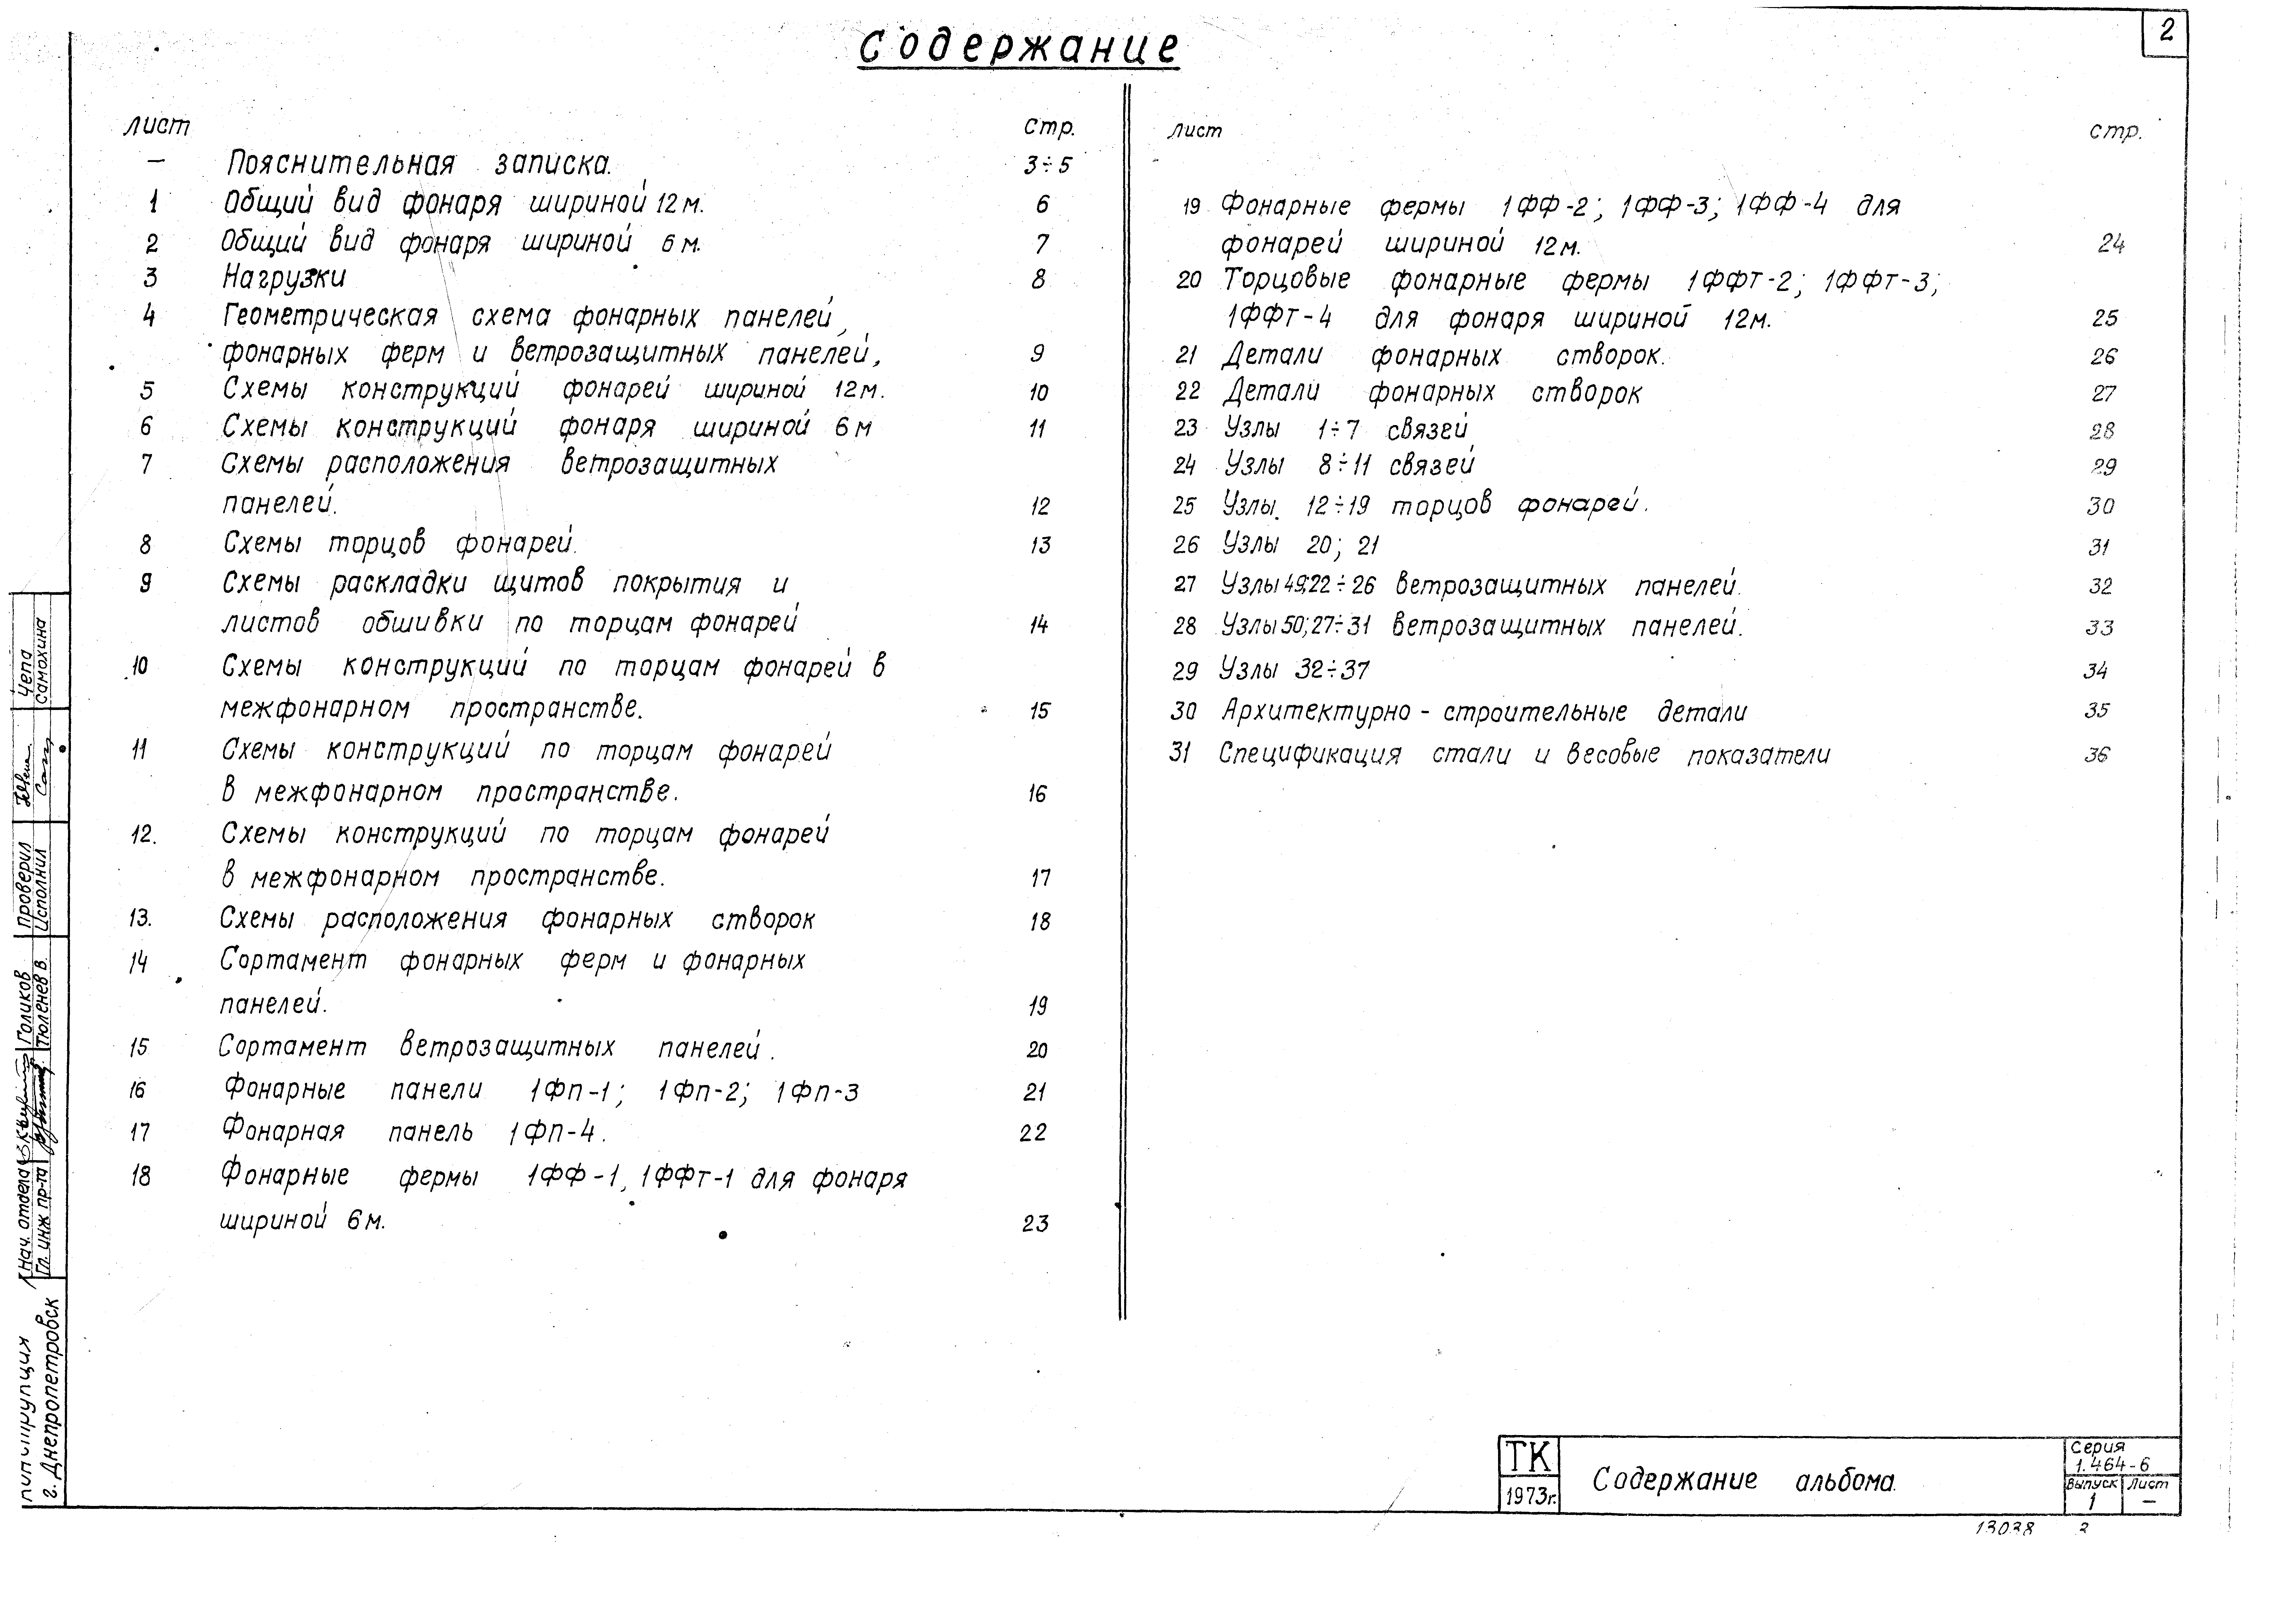 2
Содержание
лист стр.
— Пояснительная записка. 3÷5
1 Общий вид фонаря шириной 12м. 6
2 Общий вид фонаря шириной 6м. 7
3 Нагрузки 8
4 Геометрическая схема фонарных панелей,
фонарных ферм и ветрозащитных панелей, 9
5 Схемы конструкций фонарей шириной 12м. 10
6 Схемы конструкций фонаря шириной 6м 11
7 Схемы расположения ветрозащитных
панелей. 12
8 Схемы торцов фонарей. 13
9 Схемы раскладки щитов покрытия и
листов обшивки по торцам фонарей 14
10 Схемы конструкций по торцам фонарей в
межфонарном пространстве. 15
11 Схемы конструкций по торцам фонарей
в межфонарном пространстве. 16
12. Схемы конструкций по торцам фонарей
в межфонарном пространстве. 17
13. Схемы расположения фонарных створок 18
14 Сортамент фонарных ферм и фонарных
панелей. 19
15 Сортамент ветрозащитных панелей. 20
16 Фонарные панели 1ФП-1; 1ФП-2; 1ФП-3 21
17 Фонарная панель 1ФП-4. 22
18 Фонарные фермы 1ФФ-1, 1ФФТ-1 для фонаря
шириной 6м. 23
лист стр.
19 Фонарные фермы 1ФФ-2; 1ФФ-3; 1ФФ-4 для
фонарей шириной 12м. 24
20 Торцовые фонарные фермы 1ФФТ-2; 1ФФТ-3;
1ФФТ-4 для фонаря шириной 12м. 25
21 Детали фонарных створок. 26
22 Детали фонарных створок 27
23 Узлы 1÷7 связей 28
24 Узлы 8÷11 связей 29
25 Узлы 12÷19 торцов фонарей. 30
26 Узлы 20; 21 31
27 Узлы 49;22÷26 ветрозащитных панелей. 32
28 Узлы 50;27÷31 ветрозащитных панелей. 33
29 Узлы 32÷37 34
30 Архитектурно - строительные детали 35
31 Спецификация стали и весовые показатели 36
г. Днепропетровск
Нач. отдела Голиков Проверил Чепа
Гл. инж пр-та Тюленев В. Исполнил Самохина
ТК
1973г.
Содержание альбома.
Серия
1.464-6
Выпуск Лист
1 —
13038